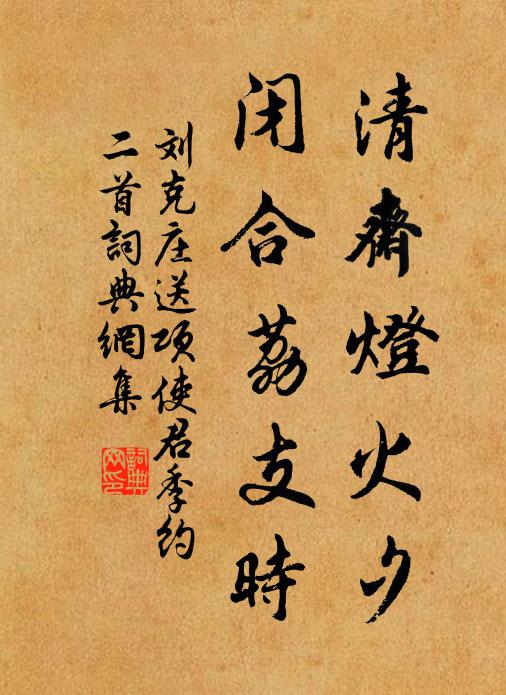 清齋燈火夕
闭合荔支時
刘克庄送项使君季約
二首詞典網集
詞典網印